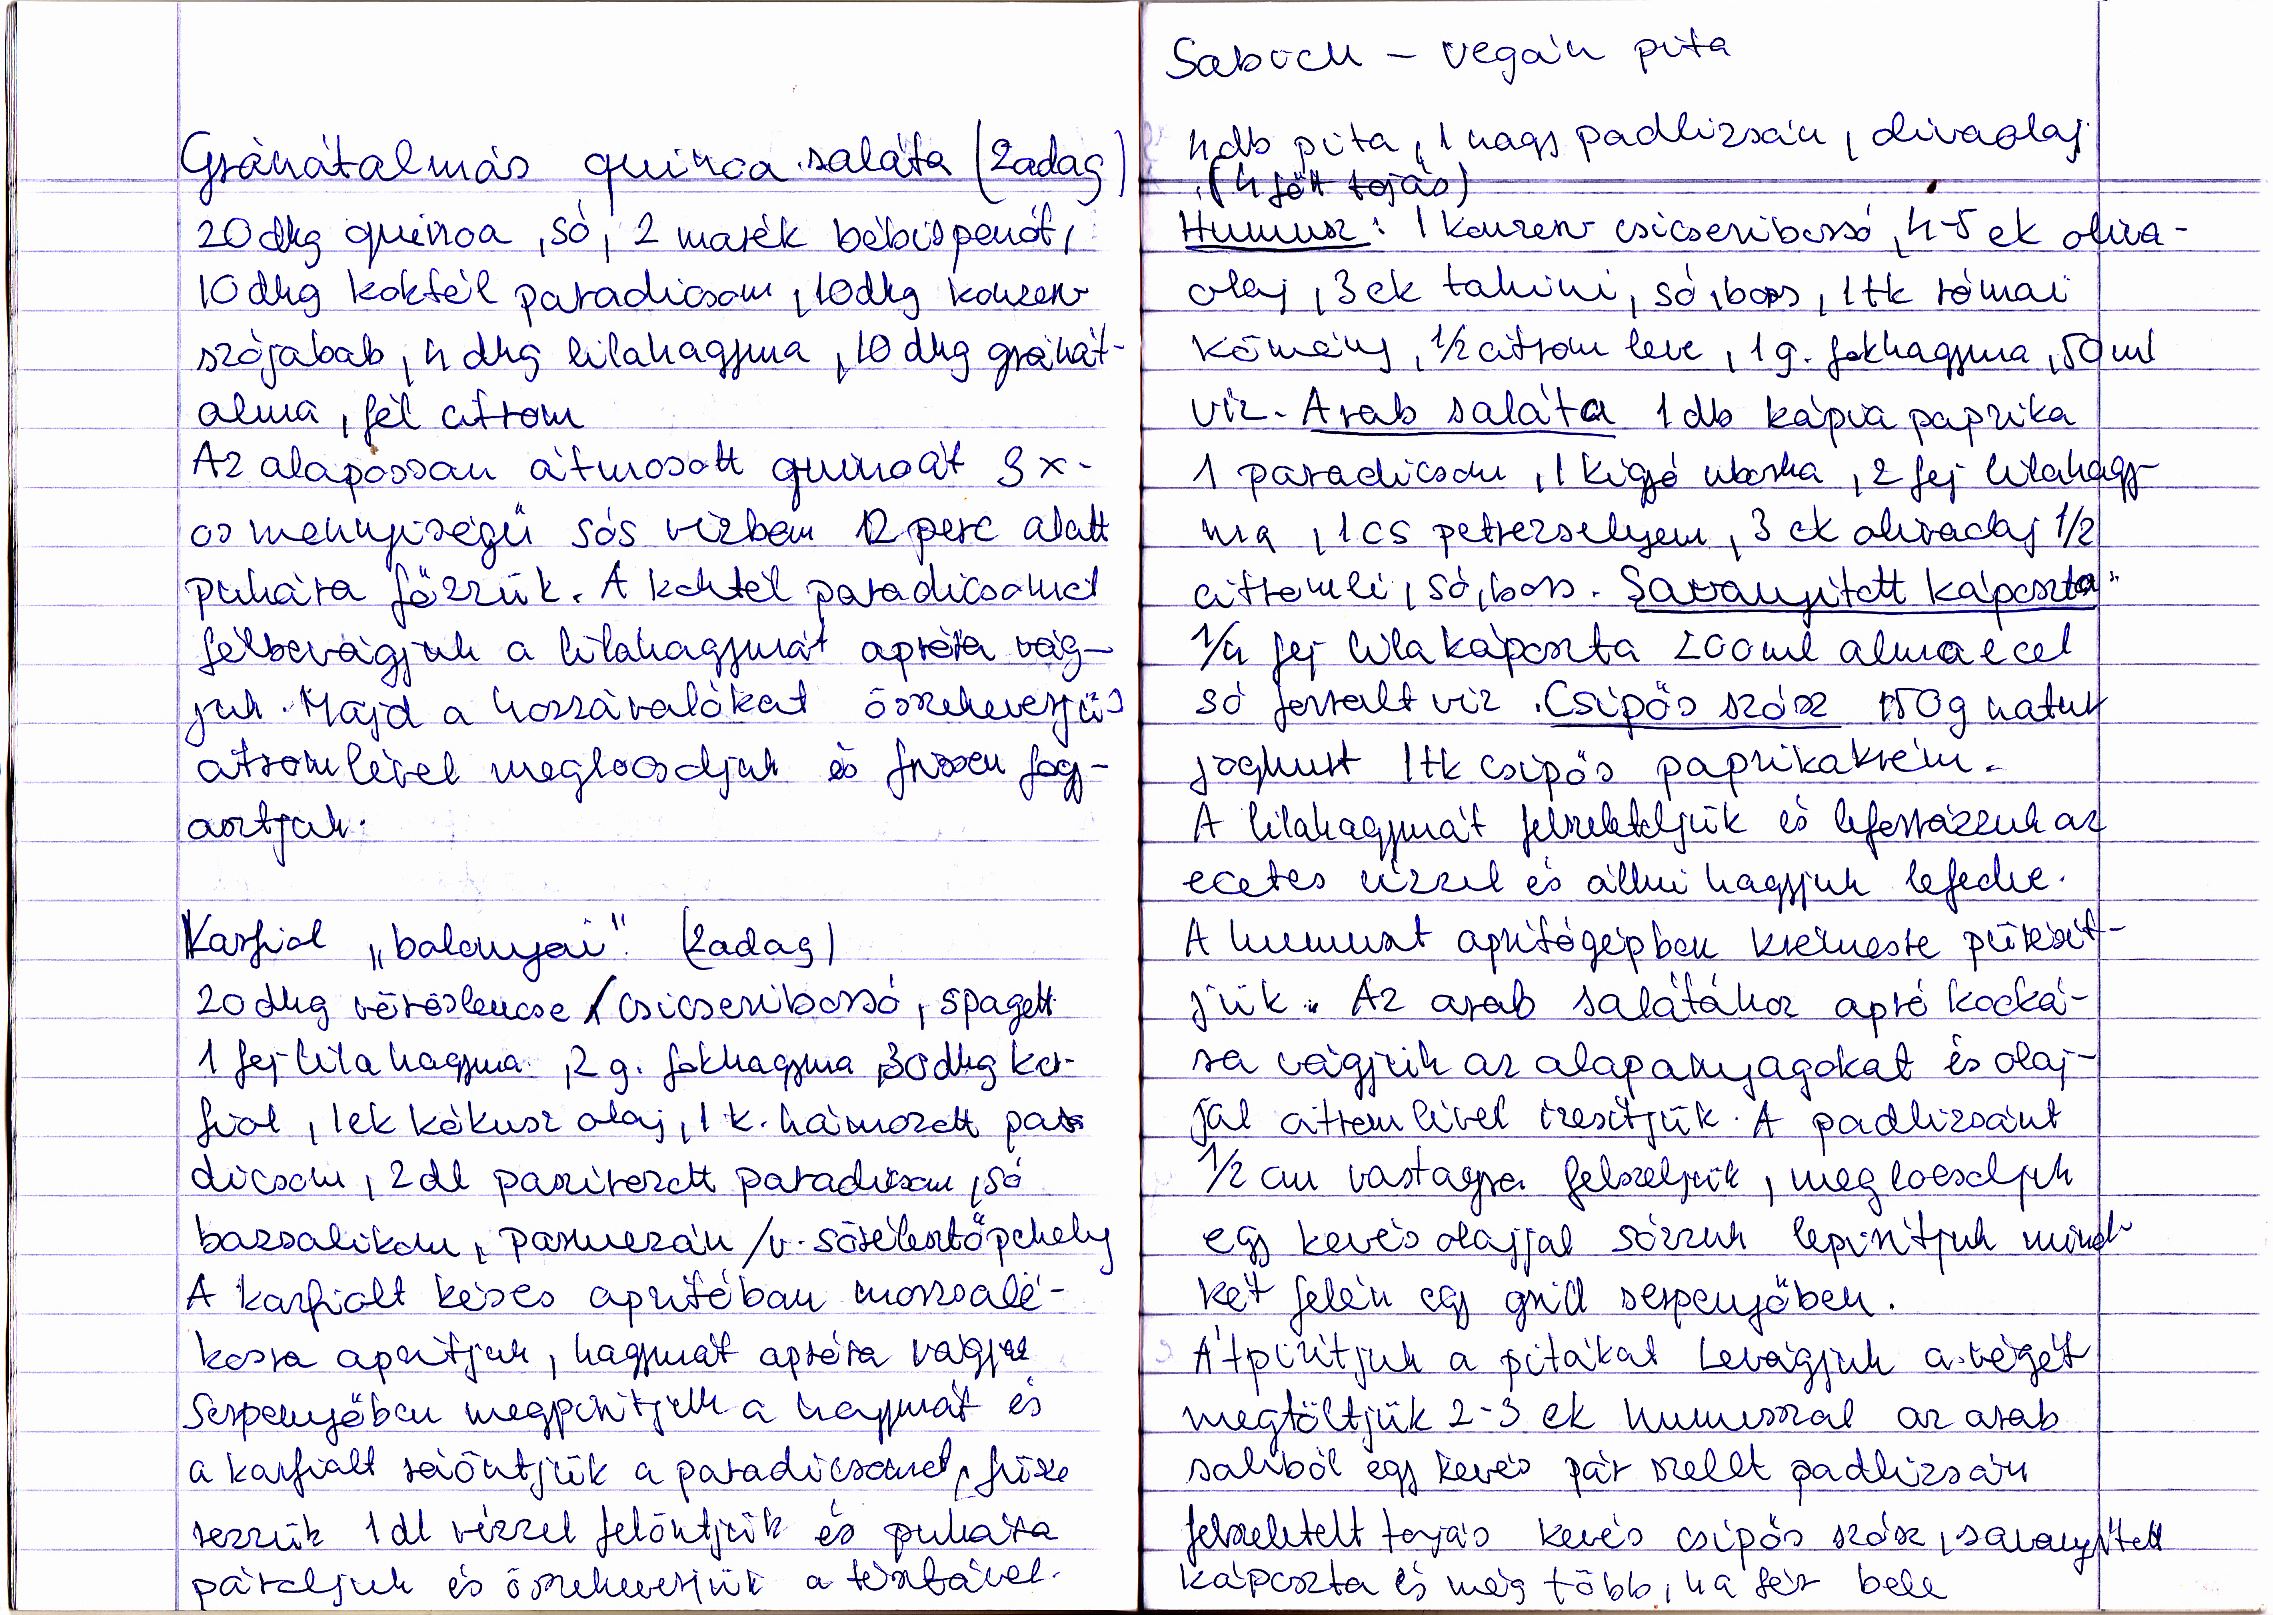 Gránátalmás quinoa saláta (2 adag)
20 dkg quinoa, só, 2 marék bébispenót,
10 dkg koktél paradicsom, 10 dkg konzerv
szójabab, 4 dkg lilahagyma, 10 dkg gránát-
alma, fél citrom
Az alapossan átmosott quinoát 3x-
os mennyiségű sós vízben 12 perc alatt
puhára főzzük. A koktél paradicsomot
félbevágjuk a lilahagymát apróra vág-
juk. Majd a hozzávalókat összekeverjük
citromlével meglocsoljuk és frissen fogy-
asztjuk.
Karfiol „bolonyai" (2 adag)
20 dkg vöröslencse / csicseriborsó, spagetti
1 fej lila hagyma, 2 g. fokhagyma, 30 dkg kar-
fiol, 1 ek kókusz olaj, 1 k. hámozott para
dicsom, 2 dl passzírozott paradicsom, só
bazsalikom, parmezán /v. sörélesztőpehely
A karfiolt késes aprítóban morzsalé-
kosra aprítjuk, hagymát apróra vágjuk
Serpenyőben megpirítjuk a hagymát és
a karfiolt ráöntjük a paradicsomot, fűsze
rezzük 1 dl vízzel felöntjük és puhára
pároljuk és összekeverjük a tésztával.
Sabich – vegán pita
4 db pita, 1 nagy padlizsán, olivaolaj
(4 főtt tojás)
Humusz: 1 konzerv csicseriborsó, 4-5 ek oliva-
olaj, 3 ek tahini, só, bors, 1 tk római
kömény, 1/2 citrom leve, 1 g. fokhagyma, 50 ml
víz. Arab saláta 1 db kápia paprika
1 paradicsom, 1 kígyó uborka, 2 fej lilahagy-
ma, 1 cs petrezselyem, 3 ek olivaolaj 1/2
citromlé, só, bors. Savanyított káposzta:
1/4 fej lila káposzta 200 ml almaecet
só forralt víz. Csípős szósz 150 g natur
joghurt 1 tk csípős paprikakrém.
A lilahagymát felszeleteljük és leforrázzuk az
ecetes vízzel és állni hagyjuk lefedve.
A humuszt aprítógépben krémesre pürésít-
jük. Az arab salátához apró kocká-
ra vágjuk az alapanyagokat és olaj-
jal citromlével ízesítjük. A padlizsánt
1/2 cm vastagra felszeljük, meglocsoljuk
egy kevés olajjal sózzuk lepirítjuk mind-
két felén egy grill serpenyőben.
Átpirítjuk a pitákat Levágjuk a végét
megtöltjük 2-3 ek humusszal az arab
saliból egy kevés pár szelet padlizsán
felszeletelt tojás kevés csípős szósz, savanyított
káposzta és még több, ha fér bele